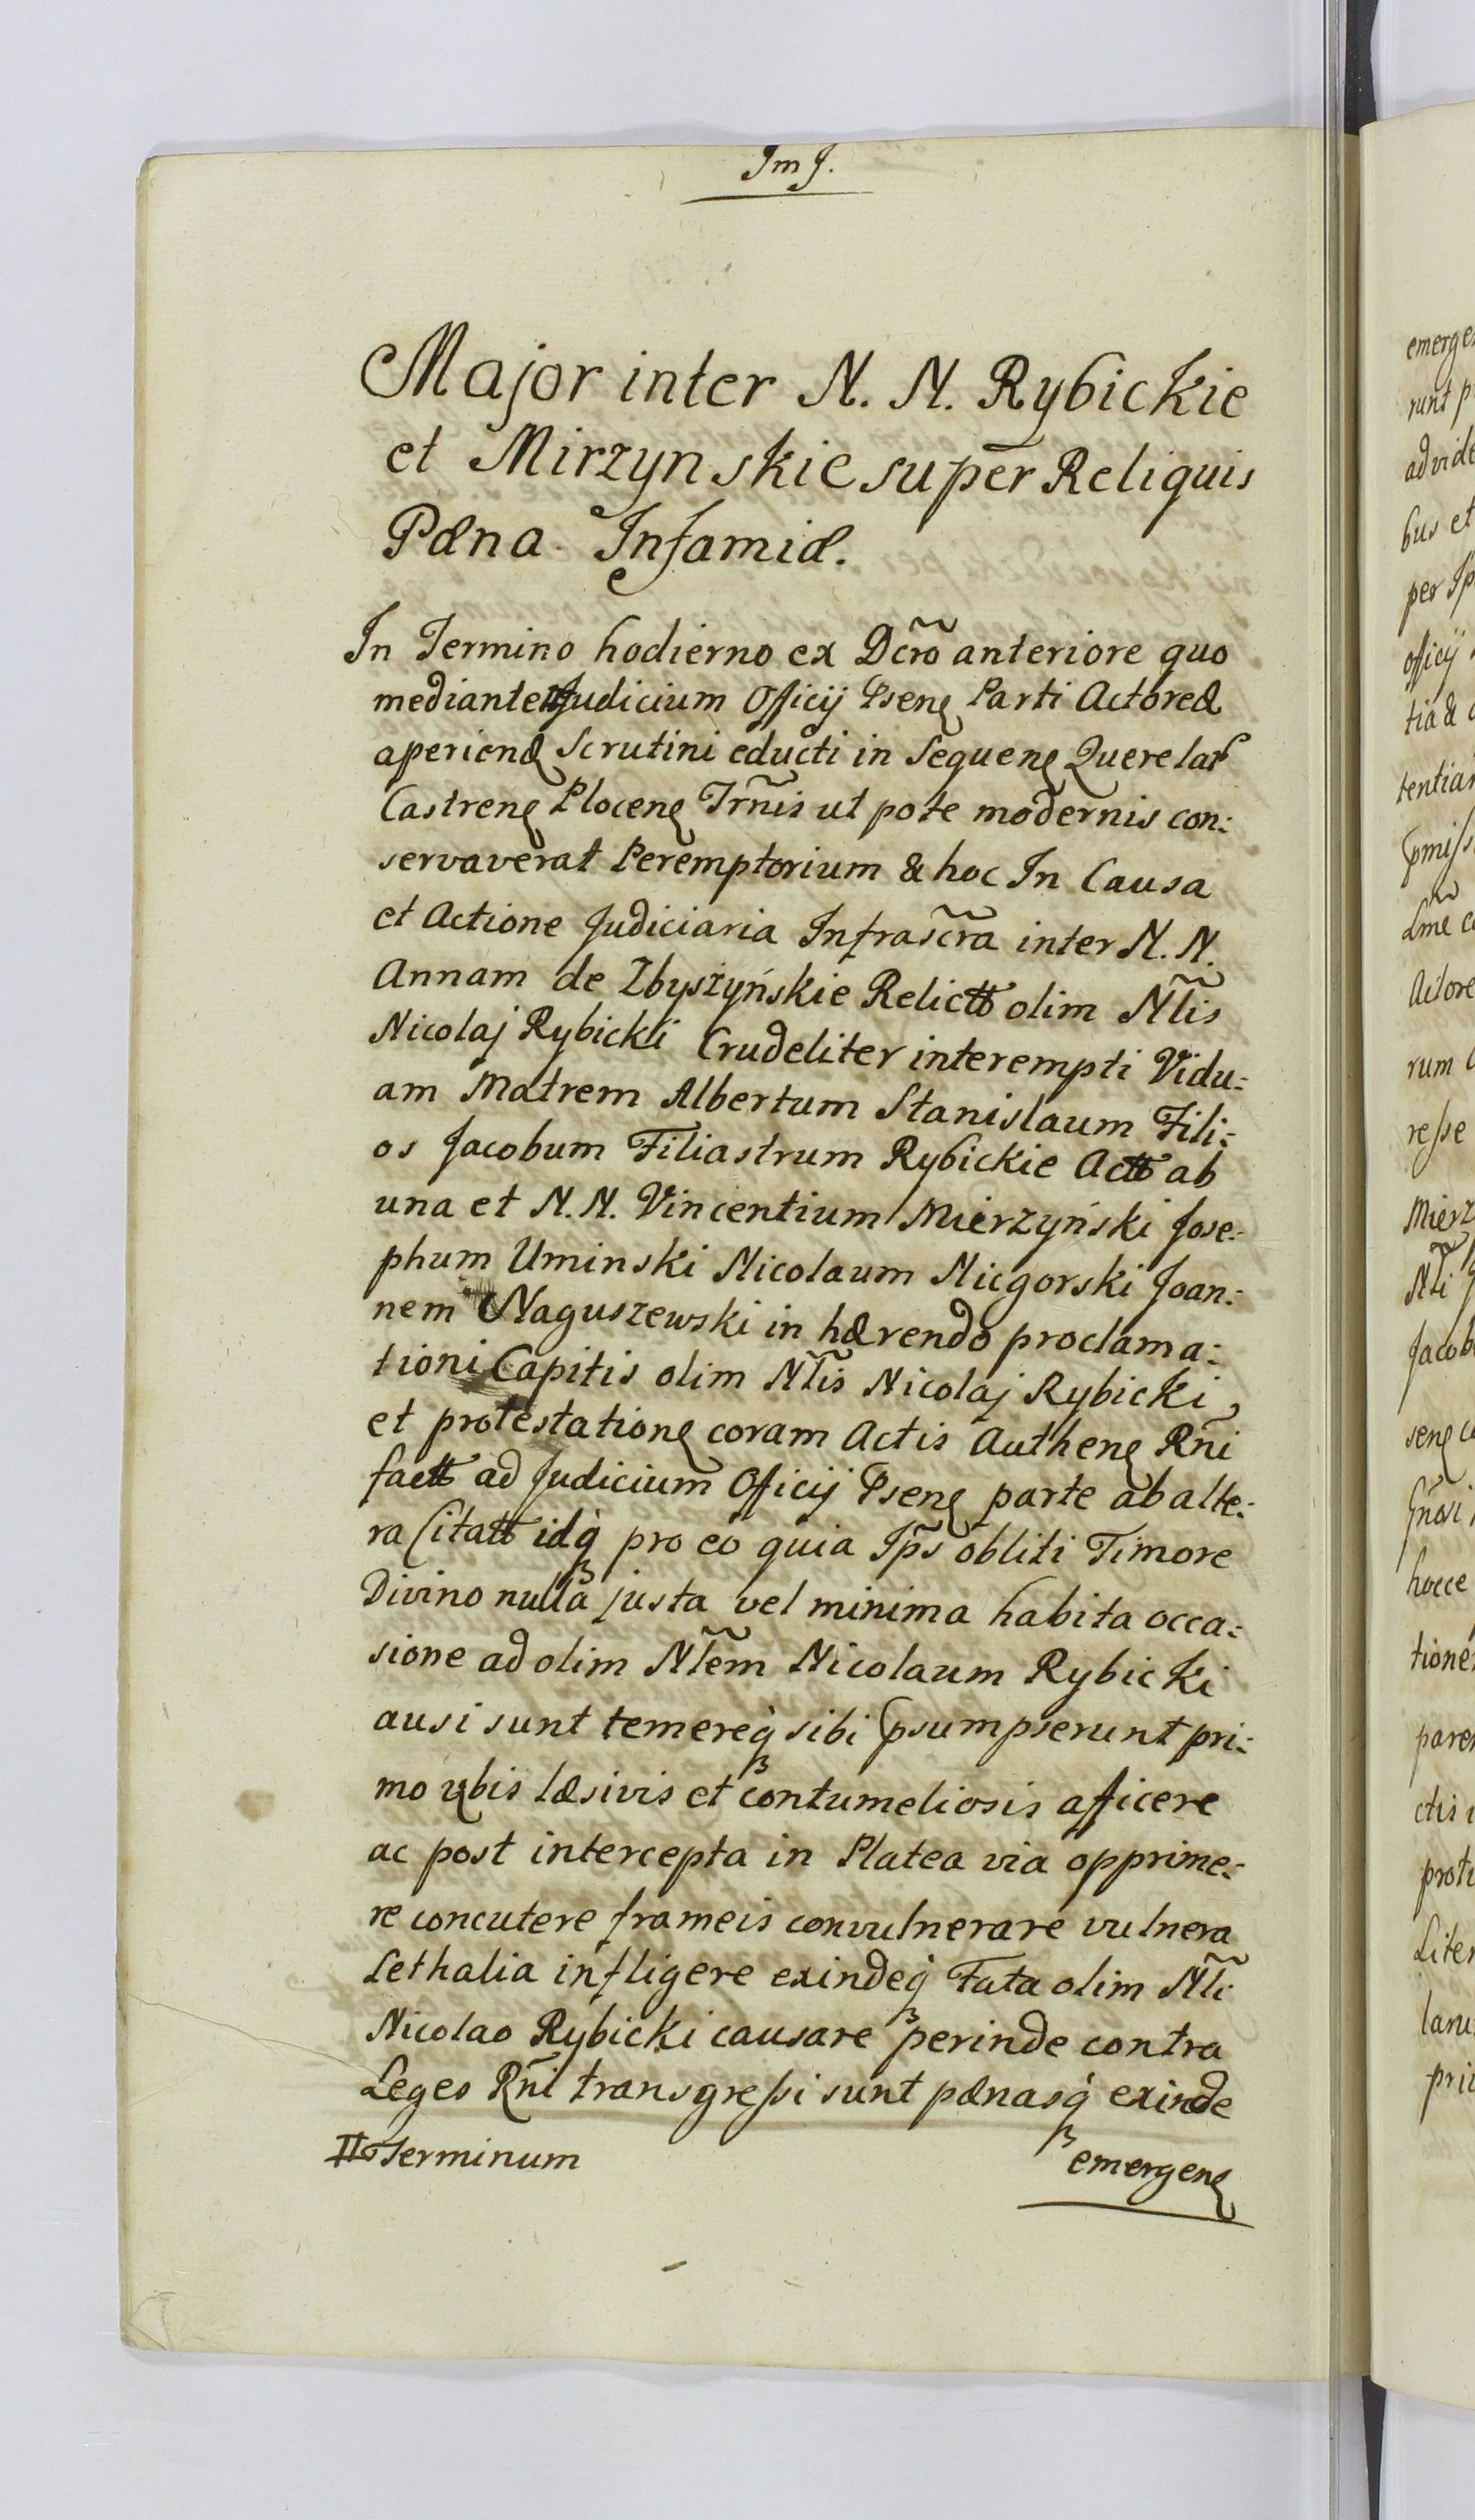 Im J.
Major inter N. N. Rybickie
et Mirzynskie super Reliquis
Pæna Infamiæ.
In Termino hodierno ex Dcro anteriore quo
mediante II Judicium Officij Psenę Parti Actoreæ
aperiendę Scrutini educti in Sequenę Querelar
Castrenę Plocenę Trnis ut pote modernis con:
servaverat Peremptorium & hoc In Causa
et Actione Judiciaria Infrascra inter N. N.
Annam de Zbyszyńskie Relictt olim Nlis
Nicolaj Rybicki Crudeliter interempti Vidu:
am Matrem Albertum Stanislaum Fili:
os Jacobum Filiastrum Rybickie Actt ab
una et N. N. Vincentium Mierzyński Jose:
phum Uminski Nicolaum Niegorski Joan:
nem Naguszewski in hærendo proclama:
tioni Capitis olim Nlis Nicolaj Rybicki
et protestationę coram Actis Authenę Rni
factt ad Judicium Officij Psenę parte ab alte:
ra Citatt idq pro eo quia Ips obliti Timore
Divino nulla justa vel minima habita occa:
sione ad olim Nlem Nicolaum Rybicki
ausi sunt temereq sibi psumpserunt pri:
mo vbis læsivis et contumeliosis afficere
ac post intercepta in Platea via opprime:
re concutere frameis convulnerare vulnera
Lethalia infligere exindeq Fata olim Nli
Nicolao Rybicki causare perinde contra
Leges Rni transgressi sunt pænasq exinde
II Terminum
emergenę